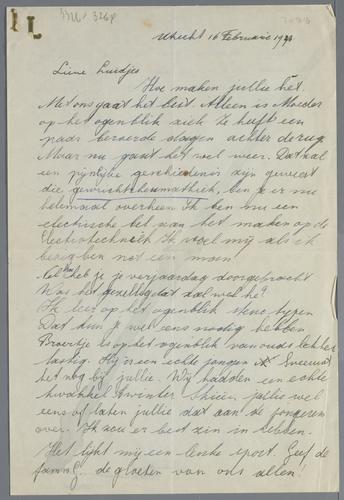 L
Utrecht 16 Februarie 19
Lieve Luidjes
Hoe maken jullie het.
Met ons gaat het best Alleen is Moeder
op het ogenblik ziek Ze heeft een
paar beroerde dagen achter de rug
Maar nu gaat het wel weer. Dat zal
een pijnlijke geschiedenis zijn geweest
die gewrichtsrheumathiek, ben je er nu
helemaal overheen Ik ben nu een
electrische bel aan het maken op de
Electrotechniek Ik voel mij als ik
bezig ben net een man!
Hoe heb je je verjaardag doorgebracht
Was het gezellig dat zal wel hè?
Ik leer op het ogenblik steno typen
Dat kun je wel eens nodig hebben
Broertje is op het ogenblik van ouds
lastig. Hij is een echte jongen Sneeuwt
het nog bij jullie. Wij hadden een echte
kwakkel winter Skiën jullie wel
eens of laten jullie dat aan de jongeren
over. Ik zou er best zin in hebben.
Het lijkt mij een leuke sport. Geef de
fam. G. de groeten van ons allen!